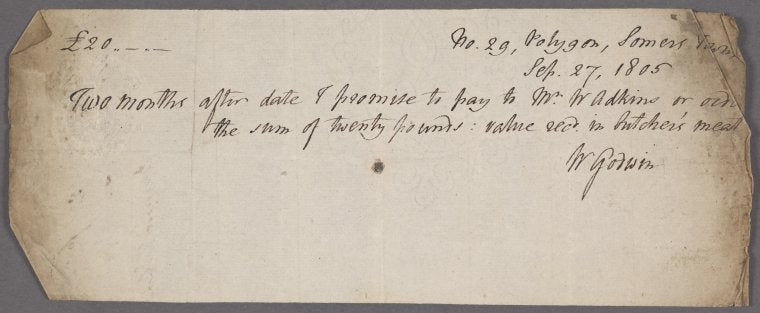 £20..—.—
No. 29, Polygon, Somers Town
Sep. 27, 1805
Two months after date I promise to pay to Mr. W Adkins or ord
the sum of twenty pounds: value recd. in butcher's meat
W Godwin